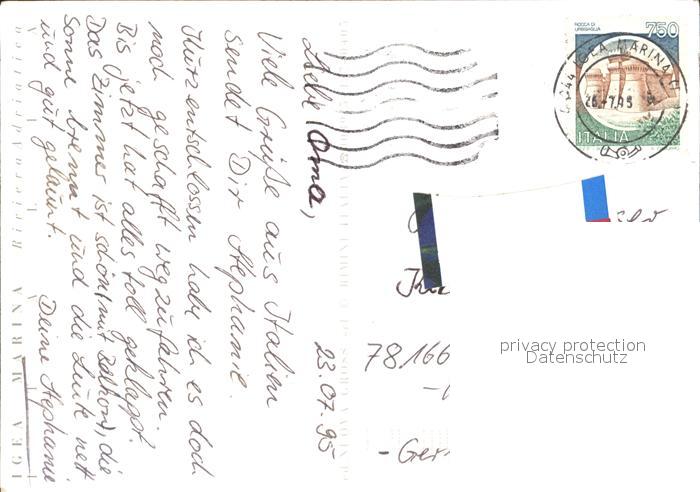 Liebe Oma,
23.07.95
Viele Grüße aus Italien
sendet Dir Stephanie.
Kurzentschlossen habe ich es doch
noch geschafft wegzufahren.
Bis jetzt hat alles toll geklappt.
Das Zimmer ist schön (mit Balkon), die
Sonne brennt und die Leute nett
und gut gelaunt.
Deine Stephanie
IGEA MARINA
ROCCA DI
URBISAGLIA
750
ITALIA
IGEA MARINA
26.7.95
78166
privacy protection
Datenschutz